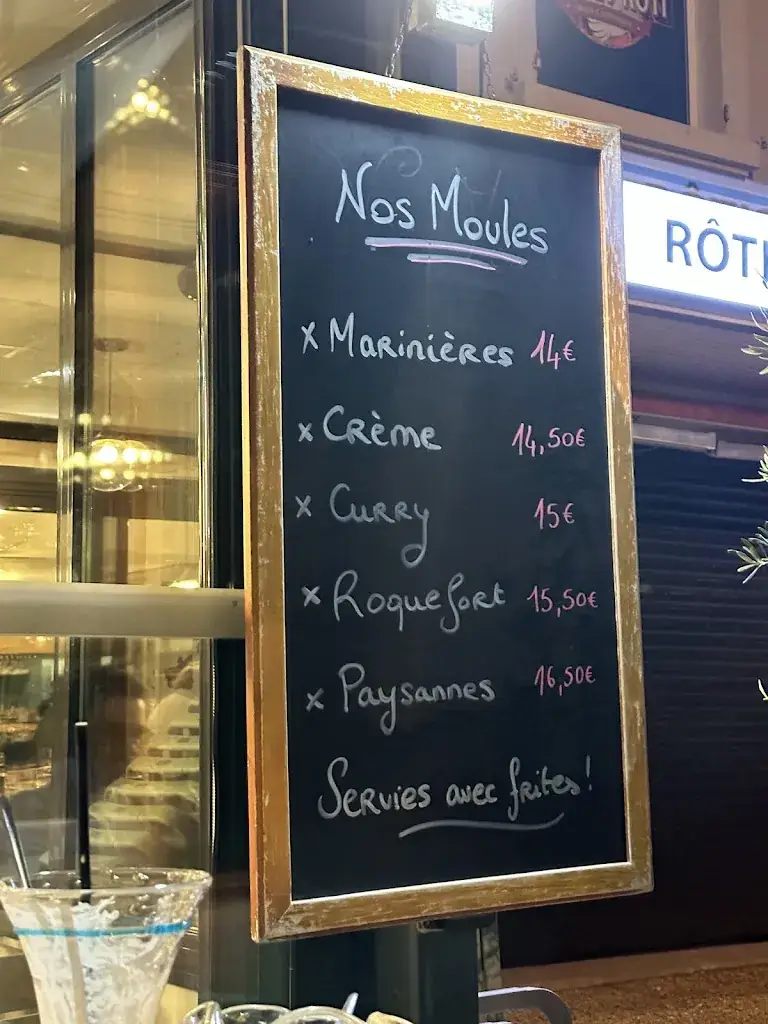 Nos Moules
x Marinières 14€
x Crème 14,50€
x Curry 15€
x Roquefort 15,50€
x Paysannes 16,50€
Servies avec frites!
RÔTI